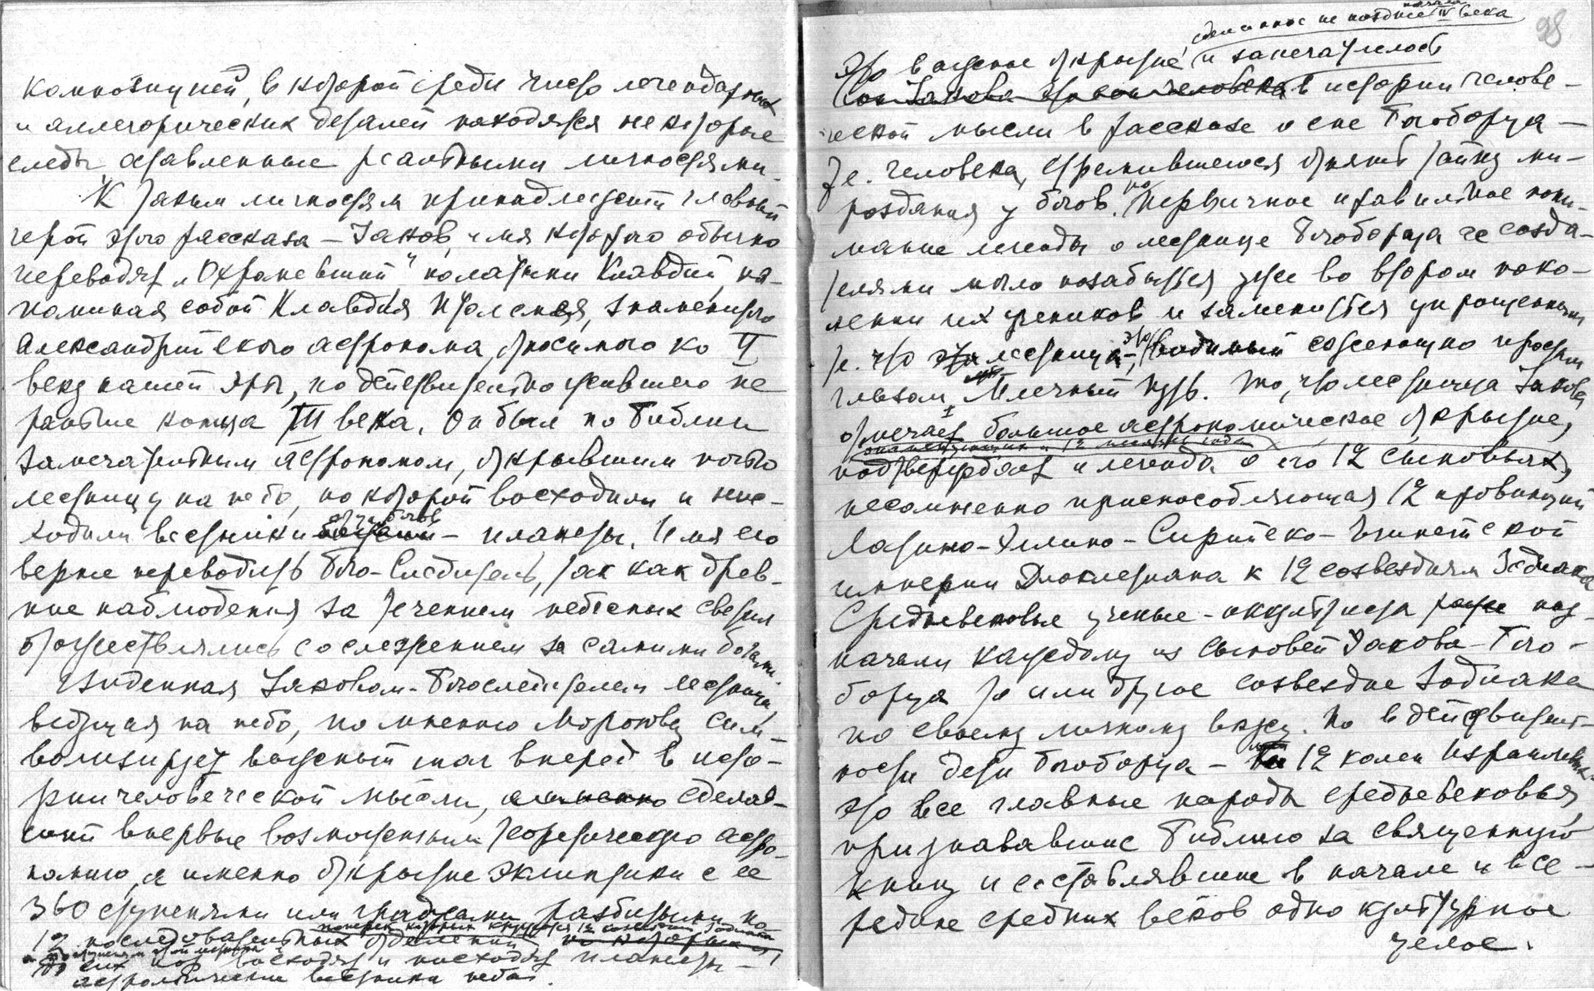 композицией, в которой среди чисто легендарных
и аллегорических деталей находятся некоторые
следы оставленные реальными личностями.
К таким личностям принадлежит главный
герой этого рассказа — Iаков, имя которого обычно
переводят „Охраневший" по латыни Клавдий, на-
поминая собой Клавдия Птолемея, знаменитого
александрийского астронома, относимого ко II
веку нашей эры, но действительно жившего не
раньше конца III века. Он был по Библии
замечательным астрономом, открывшим ночью
лестницу на небо, по которой восходили и нис-
ходили вестники отчи богов — планеты. Имя его
вернее переводить Бого-Следитель, так как древ-
ние наблюдения за течением небесных светил
отожествлялись со слежением за самими богами.
Виденная Iаковом-Богоследителем лестница,
ведущая на небо, по мнению Морозова сим-
волизирует важный шаг вперед в исто-
рии человеческой мысли, а именно сделав-
ший впервые возможным теоретическую астро-
номию, а именно открытие эклиптики с ее
360 ступенями или градусами, разбитыми на
12 последовательных отделений
восходят и нисходят планеты —
астрологические вестники неба.
сделанное не позднее начала IV века
Это важное открытие и замечательность
в истории челове-
ческой мысли в рассказе о сне Богоборца —
т.е. человека, стремившегося отнять тайну ми-
роздания у богов. Но первичное правильное пони-
мание легенды о лестнице Богоборца ее созда-
телями могло позабыться уже во втором поко-
лении их учеников и замениться упрощенным
т. что лестница — это видимый совершенно простым
глазом Млечный путь. То, что лестница Iакова
отмечает большое астрономическое открытие,
эклиптики и 12 месяцев года
подтверждает и легенда о его 12 сыновьях,
несомненно приспособляющая 12 провинций
Латино-Эллино-Сирийско-Египетской
империи Диоклетиана к 12 созвездиям Зодиака
Средневековые ученые-оккультисты даже наз-
начали каждому из сыновей Iакова-Бого-
борца то или другое созвездие Зодиака
по своему личному вкусу. Но в действитель-
ности дети Богоборца — 12 колен Израилевых
это все главные народы средневековья,
признававшие Библию за священную
книгу и составлявшие в начале и все-
редине средних веков одно культурное
целое.
98